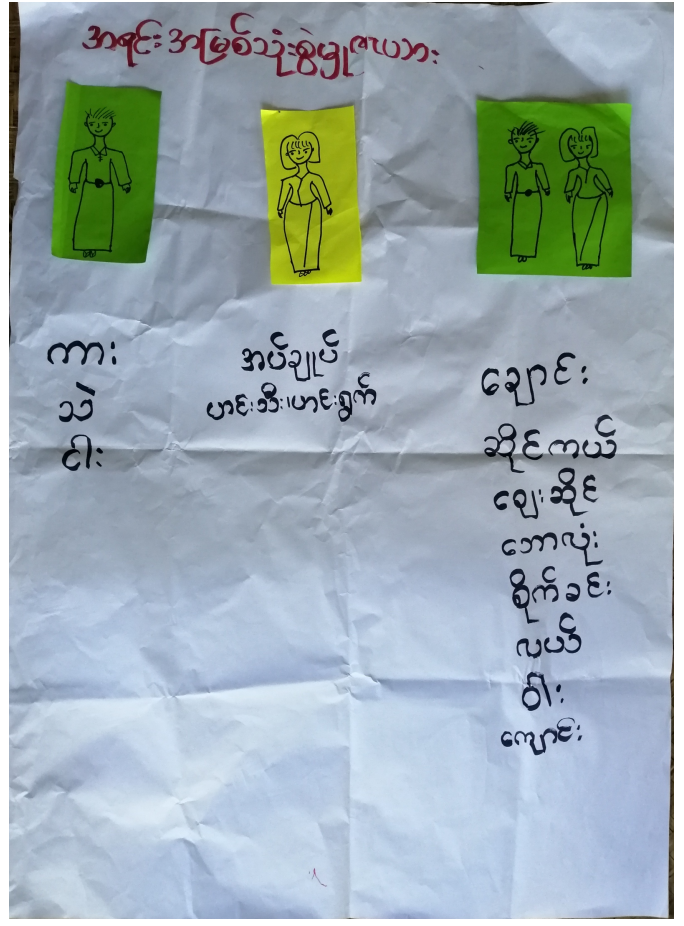 အရင်းအမြစ်သုံးစွဲမှုဇယား
ကား
သဲ
ငါး
အပ်ချုပ်
ဟင်းသီး၊ဟင်းရွက်
ချောင်း
ဆိုင်ကယ်
ဈေးဆိုင်
ဘောလုံး
စိုက်ခင်း
လယ်
ဝါး
ကျောင်း